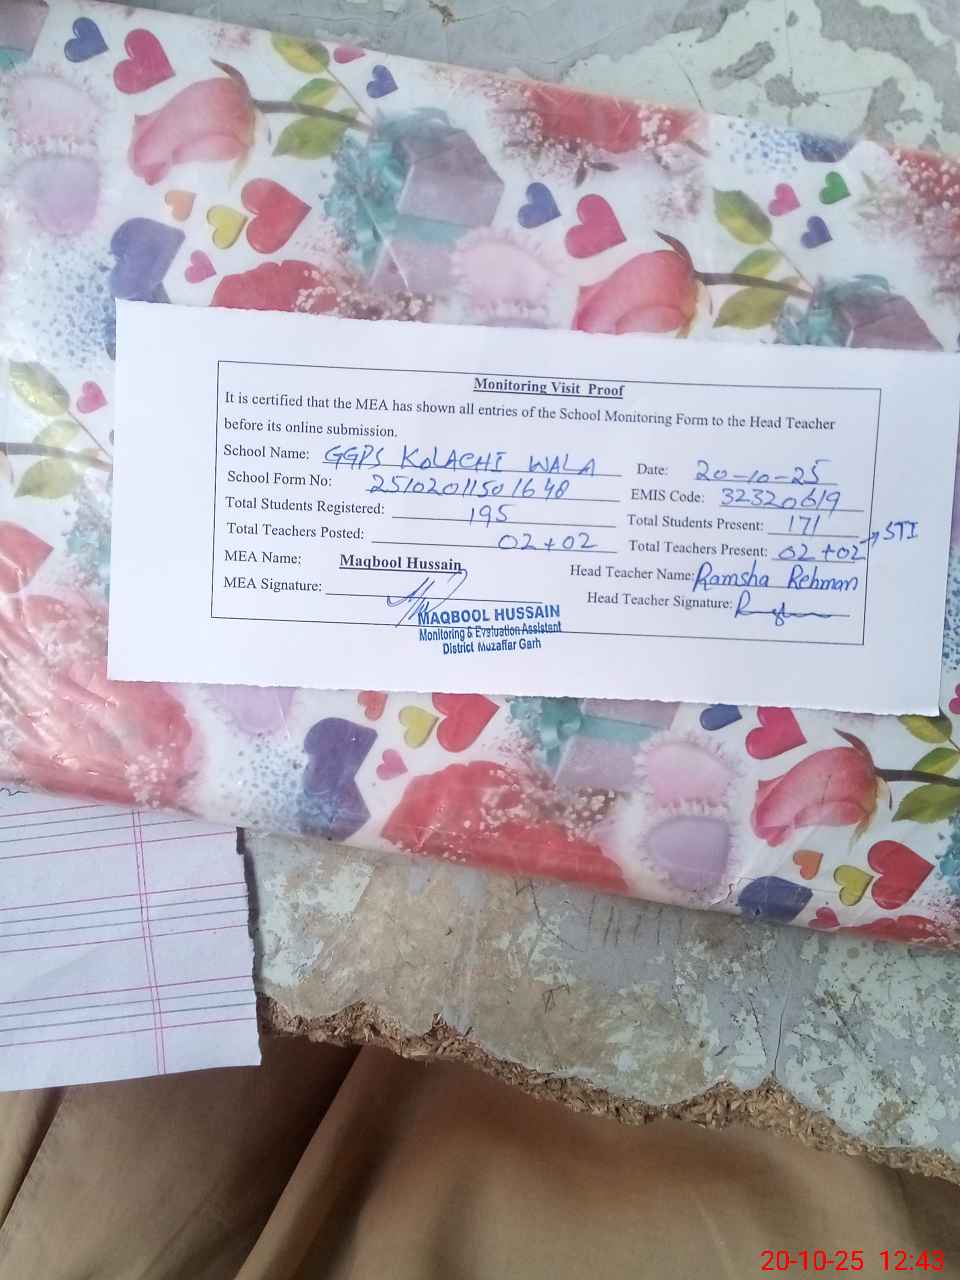 Monitoring Visit Proof
It is certified that the MEA has shown all entries of the School Monitoring Form to the Head Teacher
before its online submission.
School Name: GGPS KOLACHI WALA Date: 20-10-25
School Form No: 25102011501648 EMIS Code: 32320619
Total Students Registered: 195 Total Students Present: 171
Total Teachers Posted: 02+02 Total Teachers Present: 02+02 → STI
MEA Name: Maqbool Hussain Head Teacher Name: Ramsha Rehman
MEA Signature: Head Teacher Signature:
MAQBOOL HUSSAIN
Monitoring & Evaluation Assistant
District Muzaffar Garh
20-10-25 12:43